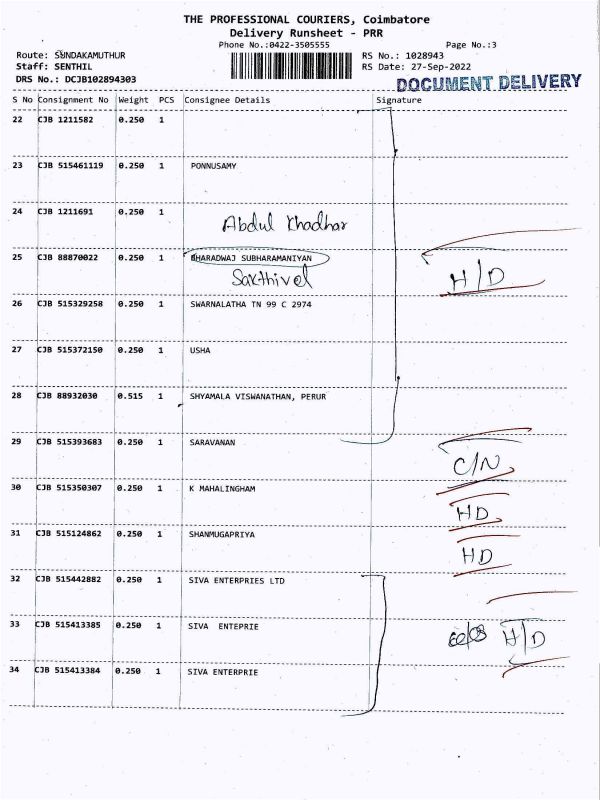 THE PROFESSIONAL COURIERS, Coimbatore
Delivery Runsheet - PRR
Phone No.:0422-3505555 Page No.:3
Route: SUNDAKAMUTHUR RS No.: 1028943
Staff: SENTHIL RS Date: 27-Sep-2022
DRS No.: DCJB102894303 DOCUMENT DELIVERY
S No Consignment No Weight PCS Consignee Details Signature
22 CJB 1211582 0.250 1
23 CJB 515461119 0.250 1 PONNUSAMY
24 CJB 1211691 0.250 1
Abdul Khadhar
25 CJB 88870022 0.250 1 BHARADWAJ SUBHARAMANIYAN
Sakthivel H/D
26 CJB 515329258 0.250 1 SWARNALATHA TN 99 C 2974
27 CJB 515372150 0.250 1 USHA
28 CJB 88932030 0.515 1 SHYAMALA VISWANATHAN, PERUR
29 CJB 515393683 0.250 1 SARAVANAN
C/N
30 CJB 515350307 0.250 1 K MAHALINGHAM
HD
31 CJB 515124862 0.250 1 SHANMUGAPRIYA
HD
32 CJB 515442882 0.250 1 SIVA ENTERPRIES LTD
33 CJB 515413385 0.250 1 SIVA ENTEPRIE H/D
34 CJB 515413384 0.250 1 SIVA ENTERPRIE